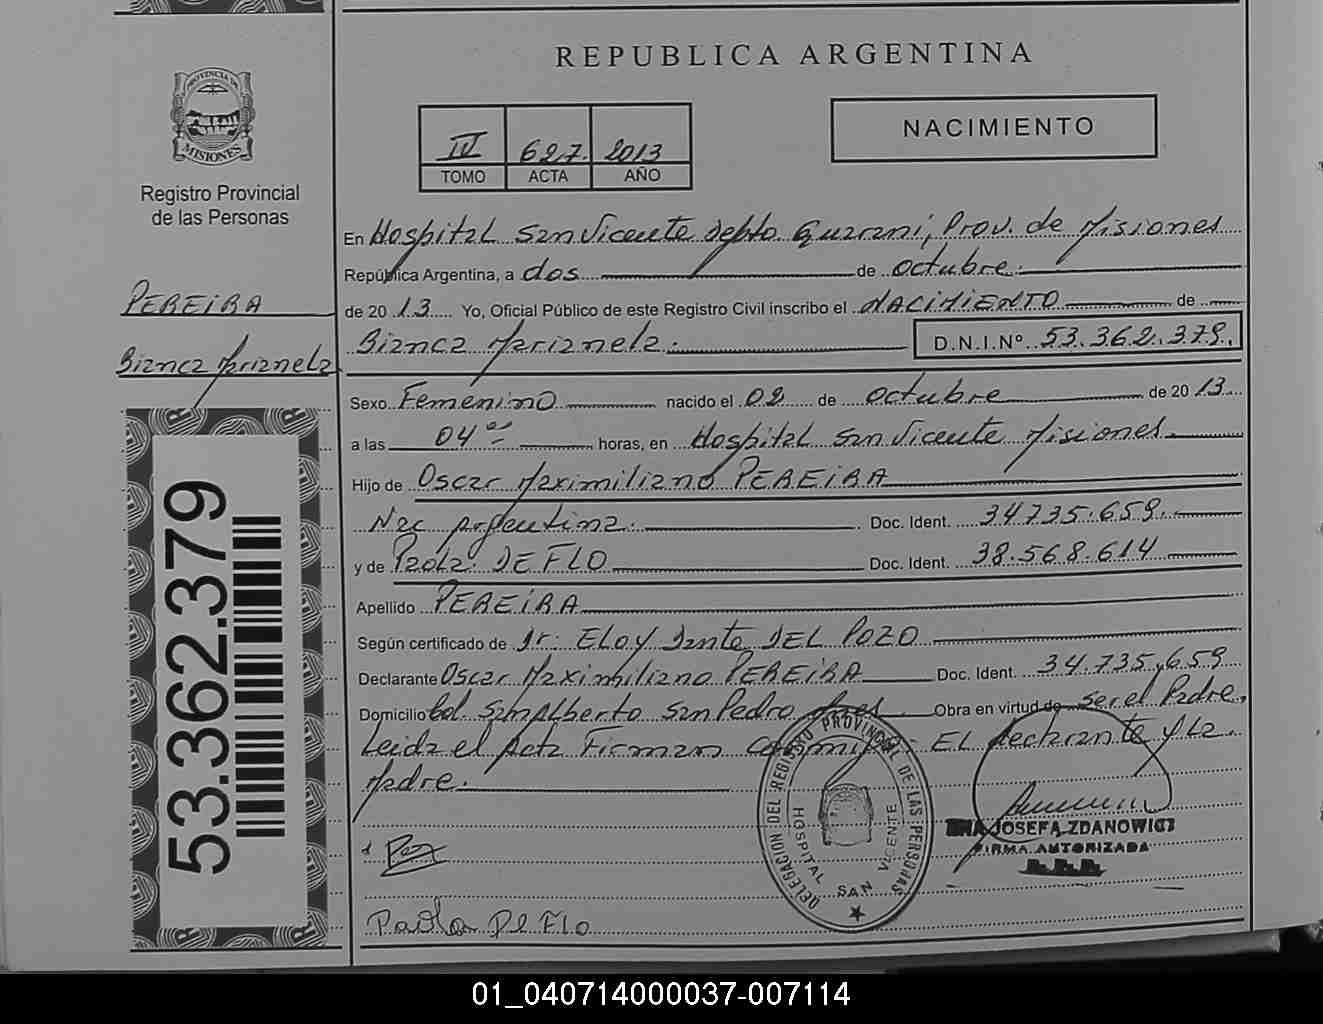 REPUBLICA ARGENTINA
PROVINCIA DE
MISIONES
Registro Provincial
de las Personas
IV 627. 2013
TOMO ACTA AÑO
NACIMIENTO
PEREIRA
Bianca Marianela
53.362.379
En Hospital San Vicente Depto. Guarani, Prov. de Misiones
República Argentina, a dos de octubre.
de 2013 Yo, Oficial Público de este Registro Civil inscribo el NACIMIENTO de
Bianca Marianela. D.N.I.Nº 53.362.379.
Sexo Femenino nacido el 02 de octubre de 2013
a las 04 horas, en Hospital San Vicente Misiones
Hijo de Oscar Maximiliano PEREIRA
Nac Argentina. Doc. Ident. 34735.659.
y de Paola DE FLO Doc. Ident. 38.568.614
Apellido PEREIRA
Según certificado de Dr: ELOY Dante DEL POZO
Declarante Oscar Maximiliano PEREIRA Doc. Ident. 34.735.659
Domicilio Col San Alberto San Pedro Mnes Obra en virtud de ser el Padre.
Leida el Acta Firman conmigo: EL declarante y La
Madre.
DELEGACION DEL REGISTRO PROVINCIAL DE LAS PERSONAS
HOSPITAL SAN VICENTE
JOSEFA ZDANOWICZ
FIRMA AUTORIZADA
Paola De Flo
01_040714000037-007114